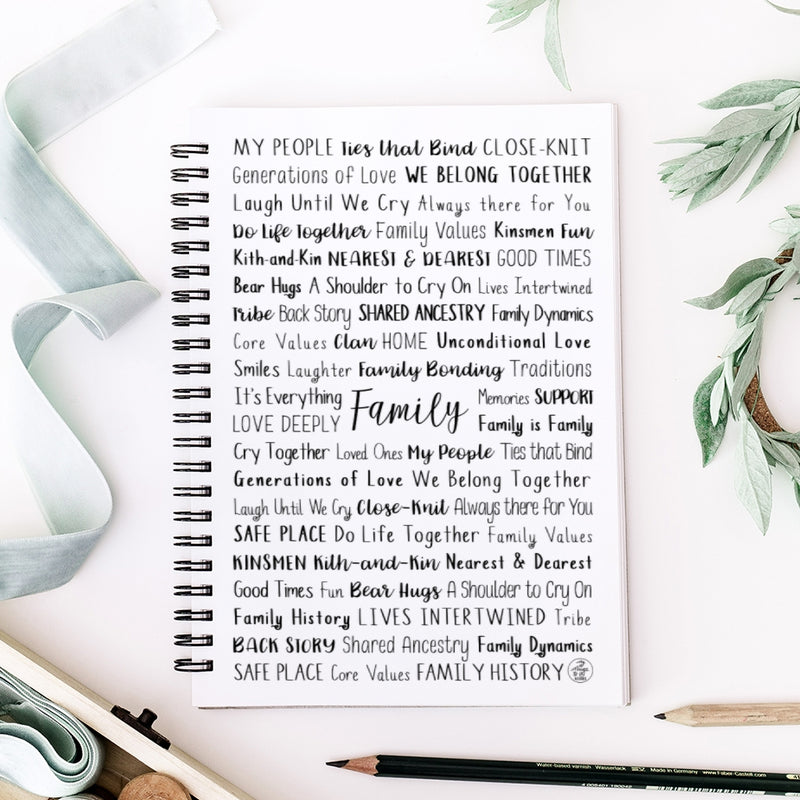 MY PEOPLE Ties that Bind CLOSE-KNIT
Generations of Love WE BELONG TOGETHER
Laugh Until We Cry Always there for You
Do Life Together Family Values Kinsmen Fun
Kith-and-Kin NEAREST & DEAREST GOOD TIMES
Bear Hugs A Shoulder to Cry On Lives Intertwined
Tribe Back Story SHARED ANCESTRY Family Dynamics
Core Values Clan HOME Unconditional Love
Smiles Laughter Family Bonding Traditions
It's Everything Family Memories SUPPORT
LOVE DEEPLY Family is Family
Cry Together Loved Ones My People Ties that Bind
Generations of Love We Belong Together
Laugh Until We Cry Close-Knit Always there for You
SAFE PLACE Do Life Together Family Values
KINSMEN Kith-and-Kin Nearest & Dearest
Good Times Fun Bear Hugs A Shoulder to Cry On
Family History LIVES INTERTWINED Tribe
BACK STORY Shared Ancestry Family Dynamics
SAFE PLACE Core Values FAMILY HISTORY
Water-based varnish Wasserlack Made in Germany www.Faber-Castell.com